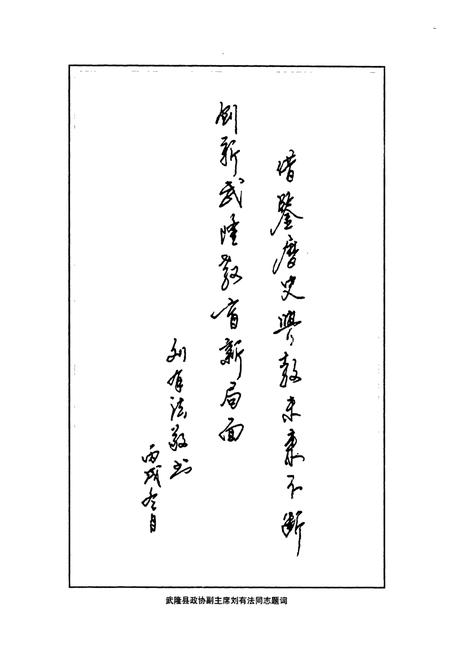 借鉴歷史興教未来不断
创新武隆教育新局面
刘有法敬书
丙戌冬月
武隆县政协副主席刘有法同志题词